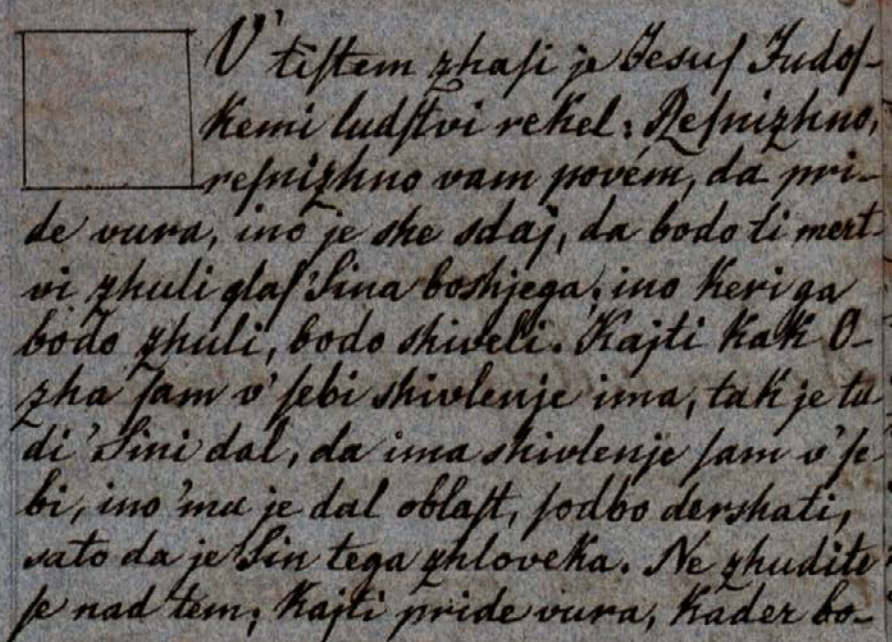 V' tiſtem zhaſi je Jesuſ Judoſ-
kemi ludſtvi rekel: Reſnizhno,
reſnizhno vam povém, da pri-
de vura, ino je she sdaj, da bodo ti mert-
vi zhuli glaſ Sina boshjega; ino keri ga
bodo zhuli, bodo shiveli. Kajti kak O-
zha ſam v' ſebi shivlenje ima, tak je tu-
di Sini dal, da ima shivlenje ſam v' ſe-
bi, ino mu je dal oblaſt, ſodbo dershati,
sato da je Sin tega zhloveka. Ne zhudite
ſe nad tem; kajti pride vura, kader bo-